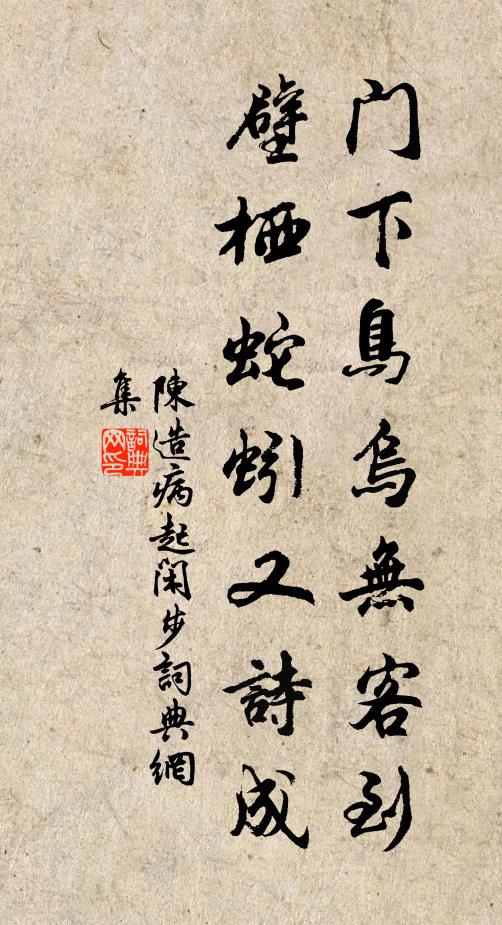 门下鳥烏無客到
壁栖蛇蚓又詩成
陳造病起閑步詞典網
集
詞典网印